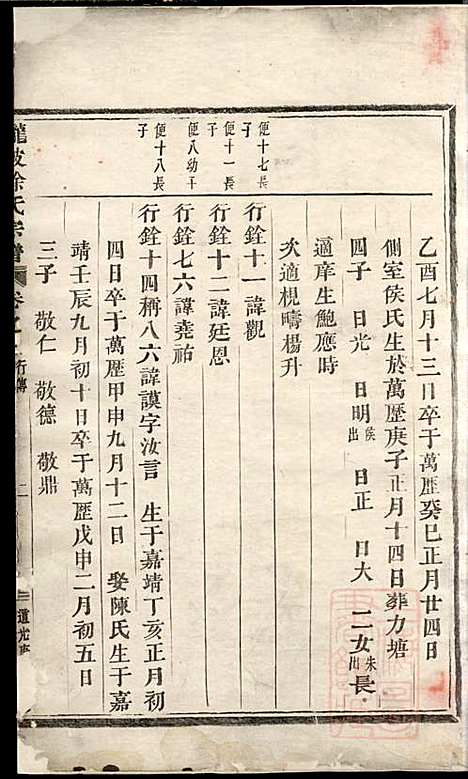 乙酉七月十三日卒于萬歷癸巳正月廿四日
側室侯氏生於萬歷庚子正月十四日葬力塘
四子 日光 日明侯出 日正 日大 二女朱出長
適庠生鮑應時
次適梘疇楊升
便十七長子
行銓十一諱觀
便十一長子
行銓十二諱廷恩
便八幼子
行銓七六諱堯祐
便十八長子
行銓十四稱八六諱謨字汝言 生于嘉靖丁亥正月初
四日卒于萬歷甲申九月十二日 娶陳氏生于嘉
靖壬辰九月初十日卒于萬歷戊申二月初五日
三子 敬仁 敬德 敬鼎
徐氏宗譜 卷之 行傳 二 道光